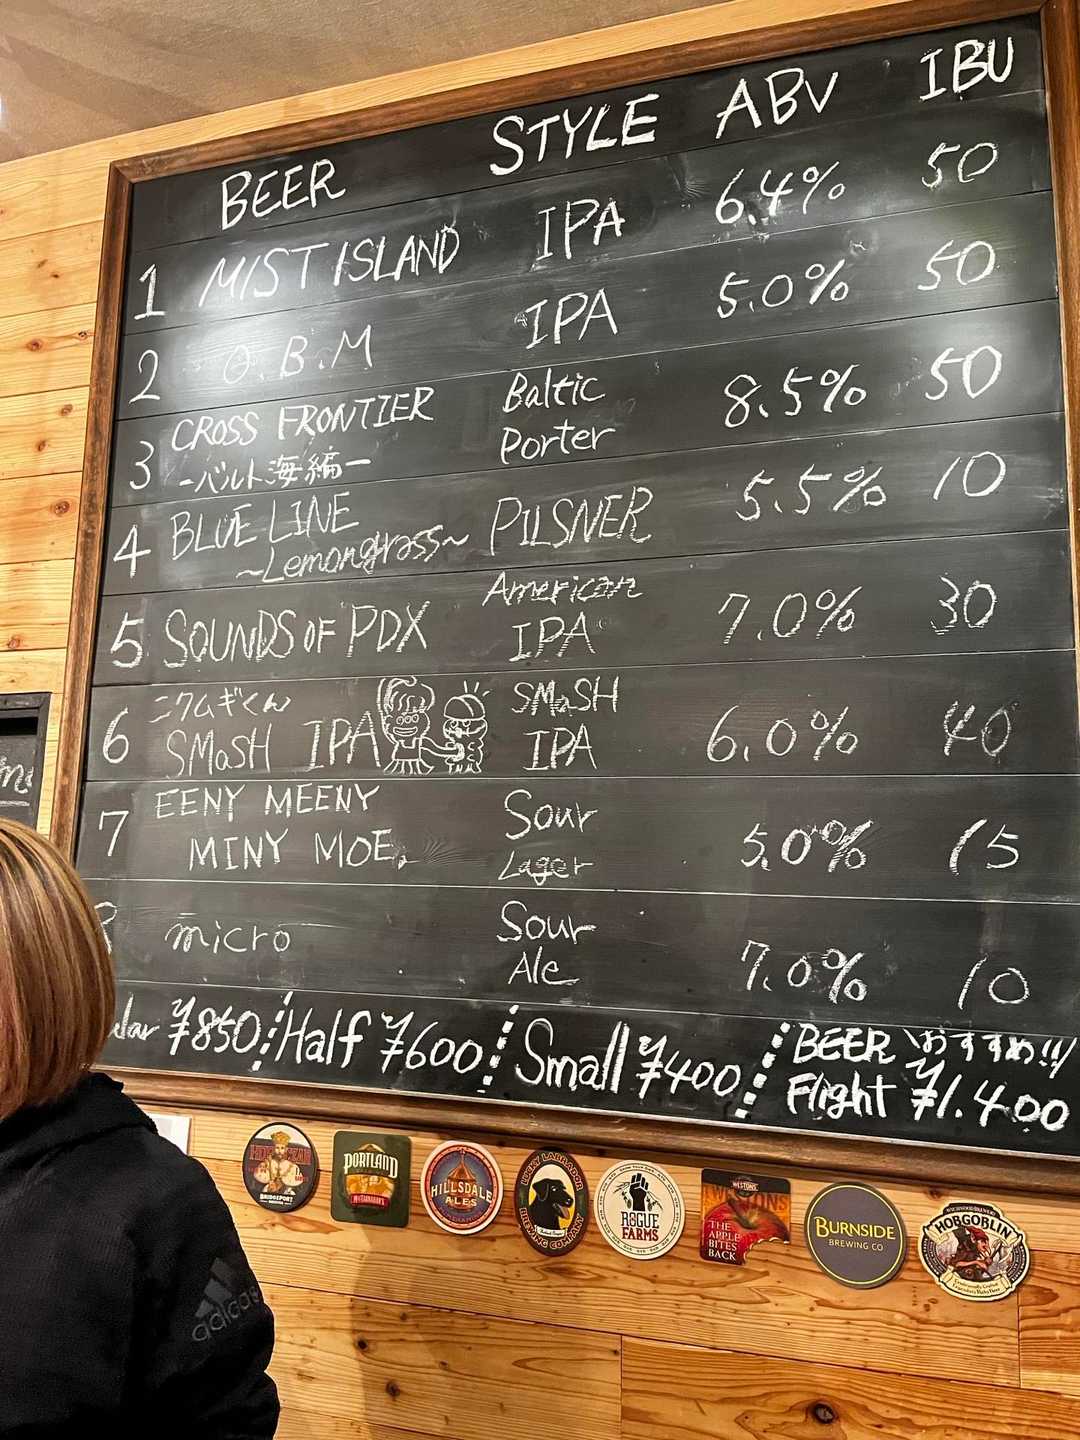 BEER STYLE ABV IBU
1 MIST ISLAND IPA 6.4% 50
2 O.B.M IPA 5.0% 50
3 CROSS FRONTIER Baltic Porter 8.5% 50
-バルト海編-
4 BLUE LINE PILSNER 5.5% 10
~Lemongrass~
5 SOUNDS OF PDX American IPA 7.0% 30
6 ニクムギくん SMaSH 6.0% 40
SMaSH IPA IPA
7 EENY MEENY Sour 5.0% 15
MINY MOE. Lager
micro Sour Ale 7.0% 10
¥850 Half ¥600 Small ¥400 BEER おすすめ!!
Flight ¥1.400
BRIDGEPORT
PORTLAND
HILLSDALE
ALES
LUCKY LABRADOR
BREWING COMPANY
ROGUE
FARMS
WESTONS
THE
APPLE
BITES
BACK
BURNSIDE
BREWING CO
HOBGOBLIN
adidas